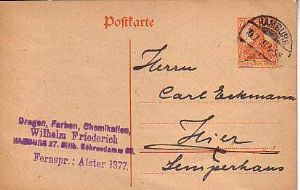 Postkarte
HAMBURG
Herrn
Carl Eckmann
Hier
Semperhaus
Drogen, Farben, Chemikalien,
Wilhelm Friederich
HAMBURG 27. Billh. Röhrendamm
Fernspr.: Alster 1377.